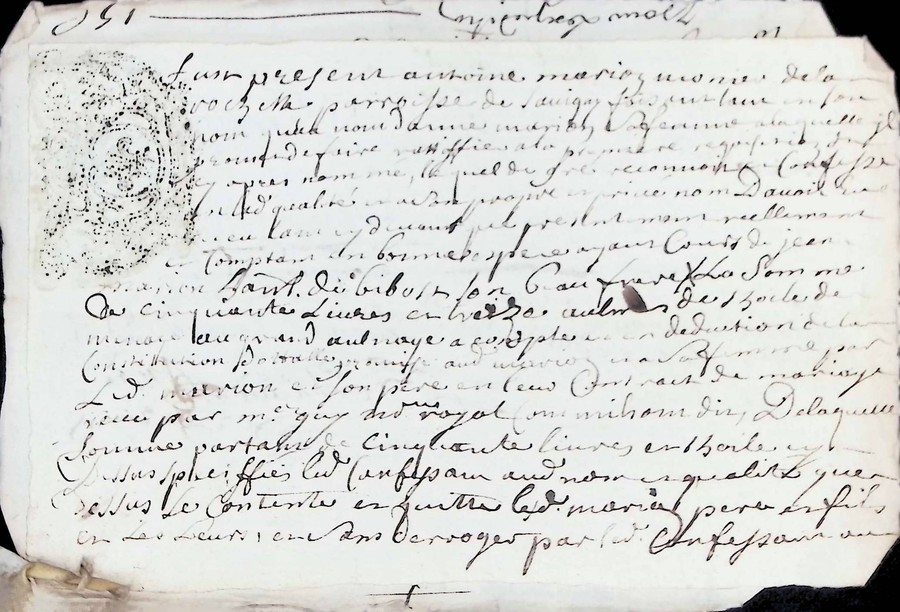 fust present antoine marion nome de la
rochette parroisse de savigny faisant tant en son
nom qua nom danne marion sa femme a laquelle il
promet de faire rattiffier a la premiere requisition
cy apres nommé, lequel de gré reconnoit et Confesse
en lad qualité et en son propre et privé nom Davoir
eu tant cydevant que presentement reellement
Comptant en bonnes espece ayant Cours de jean
marion habt. de bibost son beau frere X La Somme
De cinquante Livres et treize aulnes de thoile de
menage au grand aulnage a compte et en deduction de la
Constitution dotralle promise aud marion et a sa femme par
Led. marion et son pere en leur Contract de mariage
receu par me guy not royal Delaquelle
somme partant de cinquante livres et thoile cy
dessus speciffiés led Confessant aud nom et qualité que
dessus Se Contente et quitte lesd. marion pere et fils
et Les Leurs, et sans deroger par led. Confessant au